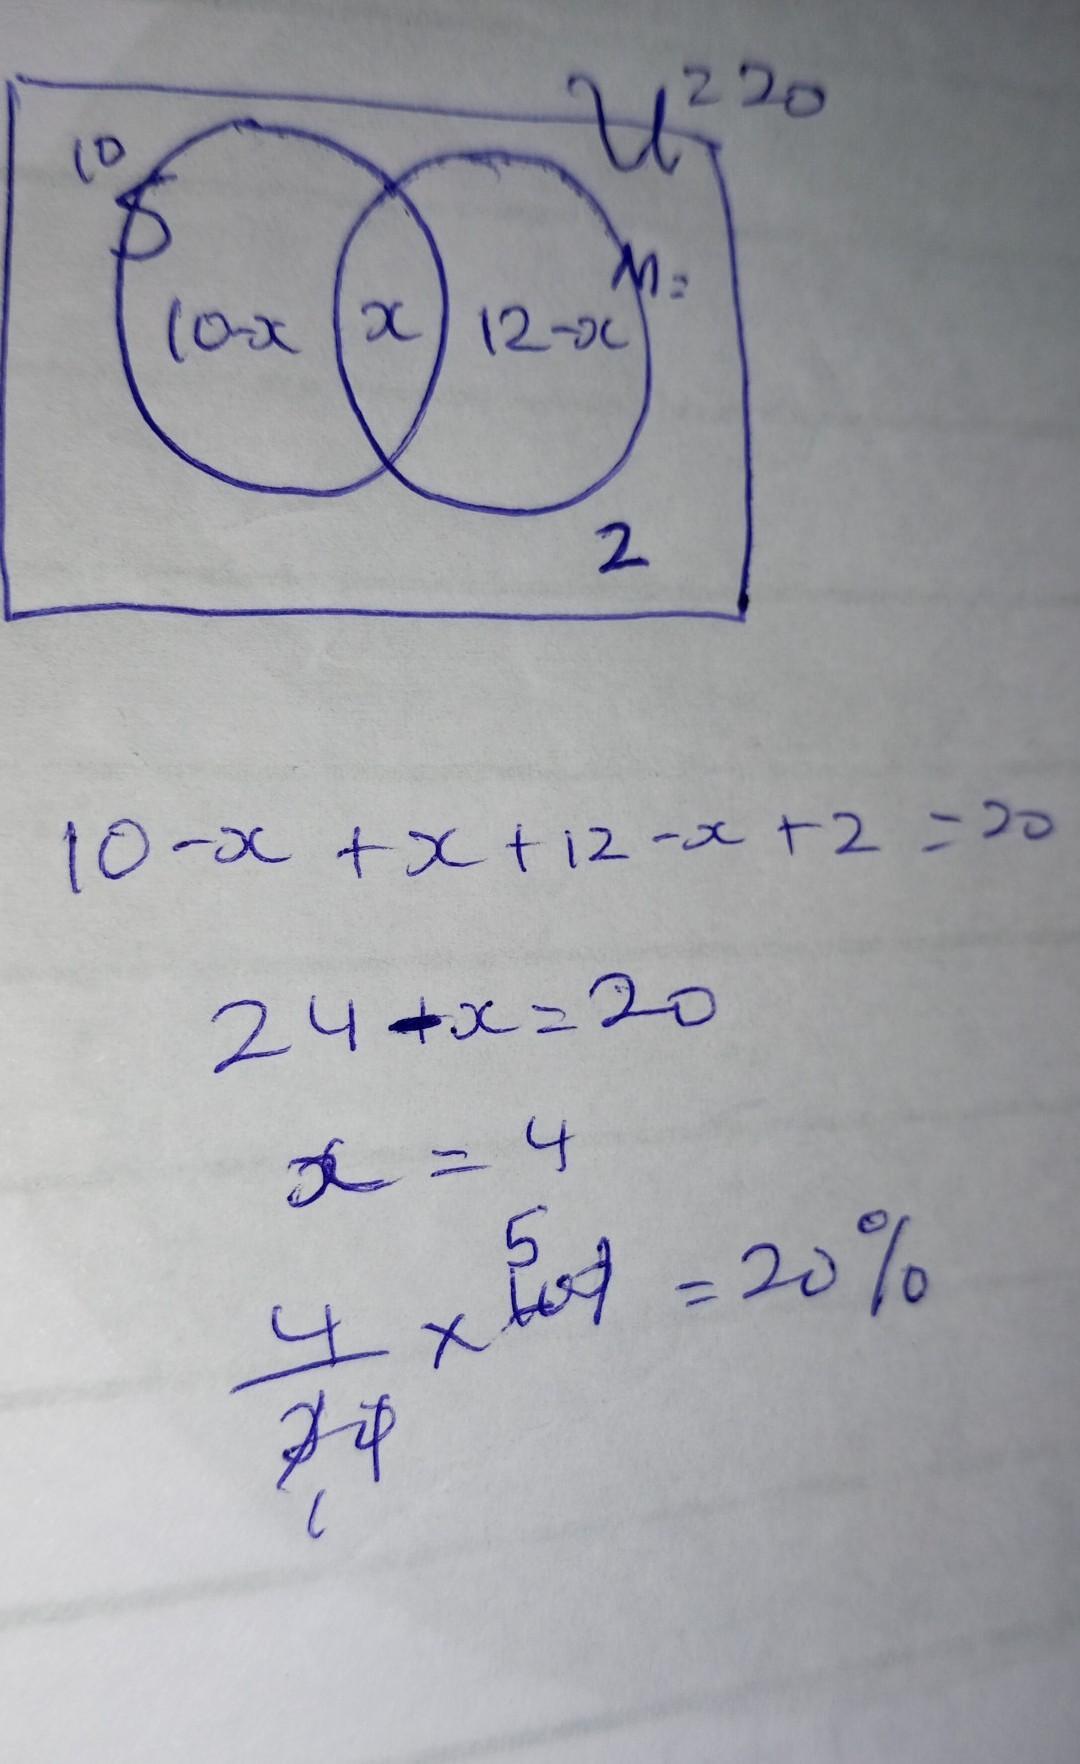 U = 20
10
S
M =
10-x x 12-x
2
10 - x + x + 12 - x + 2 = 20
24 - x = 20
x = 4
5
4/20 × 100 = 20%
1